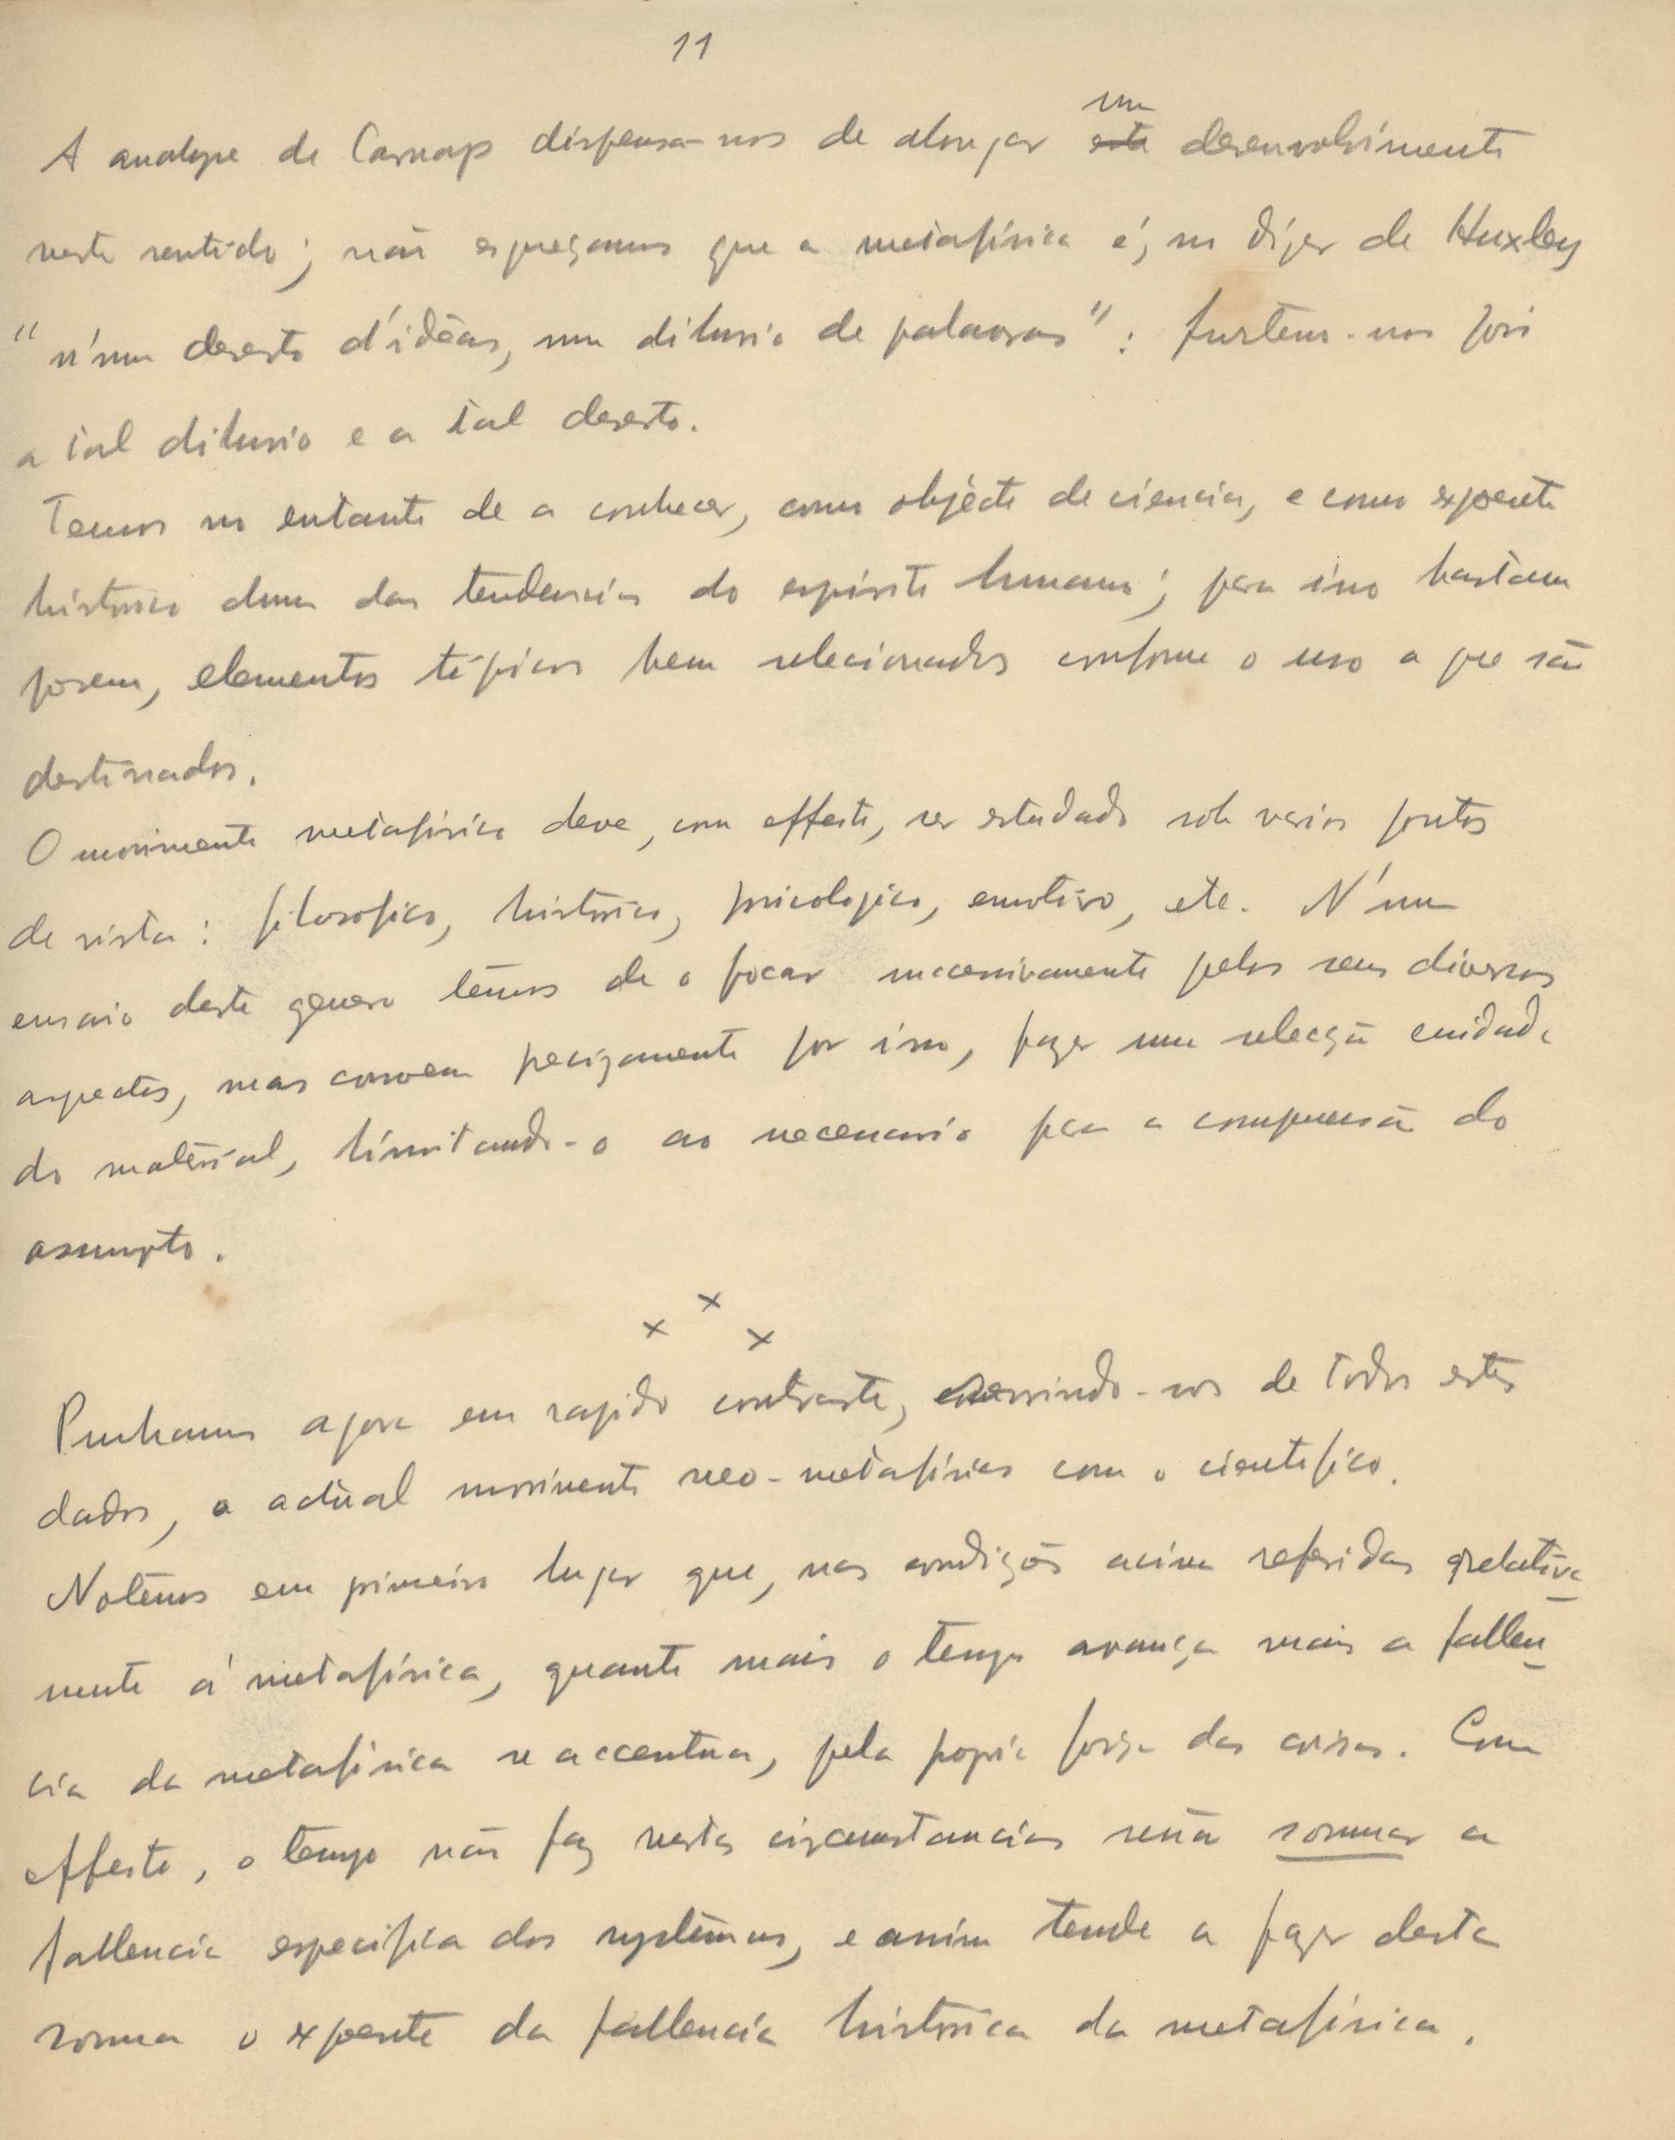 11
um
A analyse de Carnap dispensa-nos de alongar esta desenvolvimento
neste sentido; não esqueçamos que a metafísica é, no dizer de Huxley
"n'um deserto d'idêas, um diluvio de palavras": furtemo-nos pois
a tal diluvio e a tal deserto.
Temos no entanto de a conhecer, como objècto de ciencia, e como expoente
historico duma das tendencias do espirito humano; para isso bastam
porem, elementos típicos bem selecionados conforme o uso a que são
destinados.
O movimento metafisico deve, com effeito, ser estudado sob varios pontos
de vista: filosofico, historico, psicologico, emotivo, etc. N'um
ensaio deste genero têmos de o focar successivamente pelos seus diversos
aspectos, mas convem precizamente por isso, fazer uma selecção cuidada
do matèrial, limitando-o ao necessario para a compreensão do
assumpto.
x x x
Ponhamos agora em rapido contraste, servindo-nos de todos estes
dados, o actùal movimento neo-metafísico com o cientifico.
Notêmos em primeiro lugar que, nas condições acima referidas relativa-
mente á metafísica, quanto mais o tempo avança mais a fallen-
cia da metafísica se accentua, pela propria força das coisas. Com
effeito, o tempo não faz nestas circumstancias senão sommar a
fallencia especifica dos systêmas, e assim tende a fazer desta
somma o expoente da fallencia historica da metafísica.